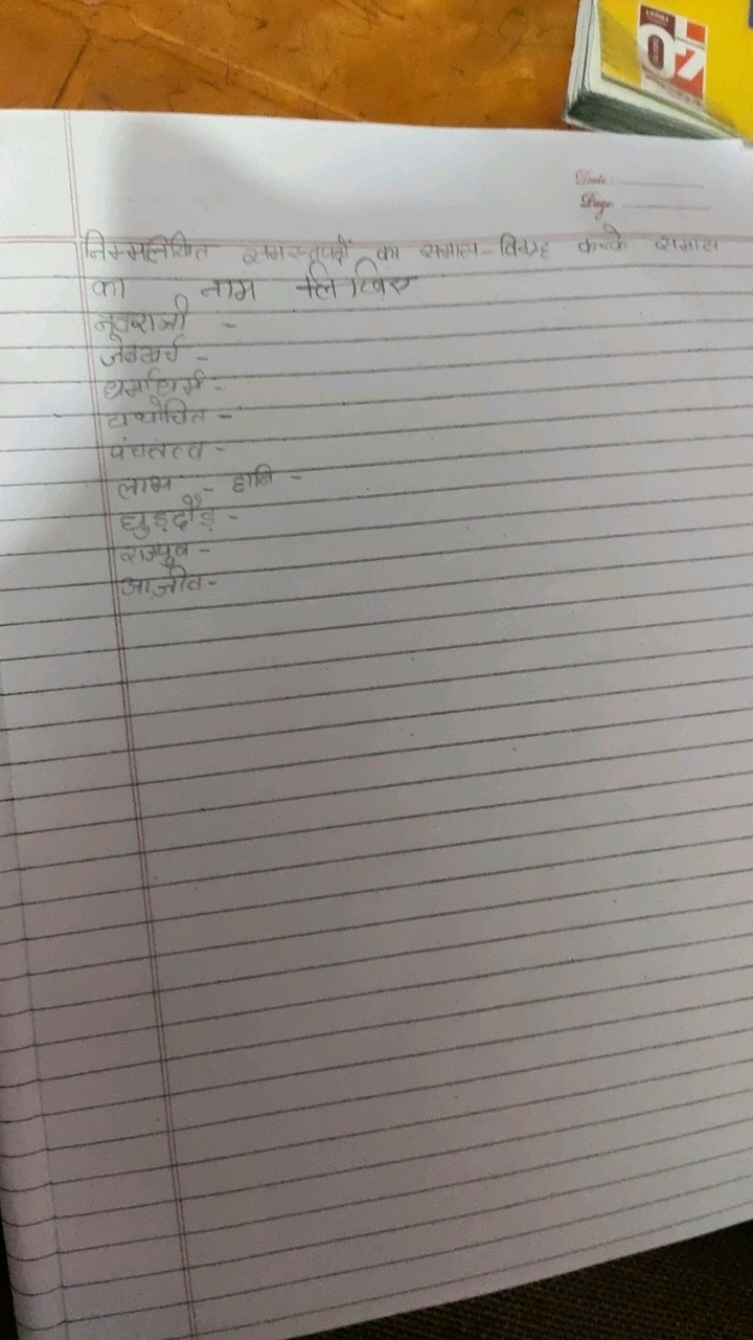 07
Date
Page
निम्मलिखित समस्तपदों का समास-विग्रह करके समास
का नाम लिखिए
नवरात्री -
जेबखर्च -
धर्माधर्म -
यथोचित -
पंचतत्व -
लाभ - हानि -
घुड़दौड़ -
राजपुत्र -
आजीव -